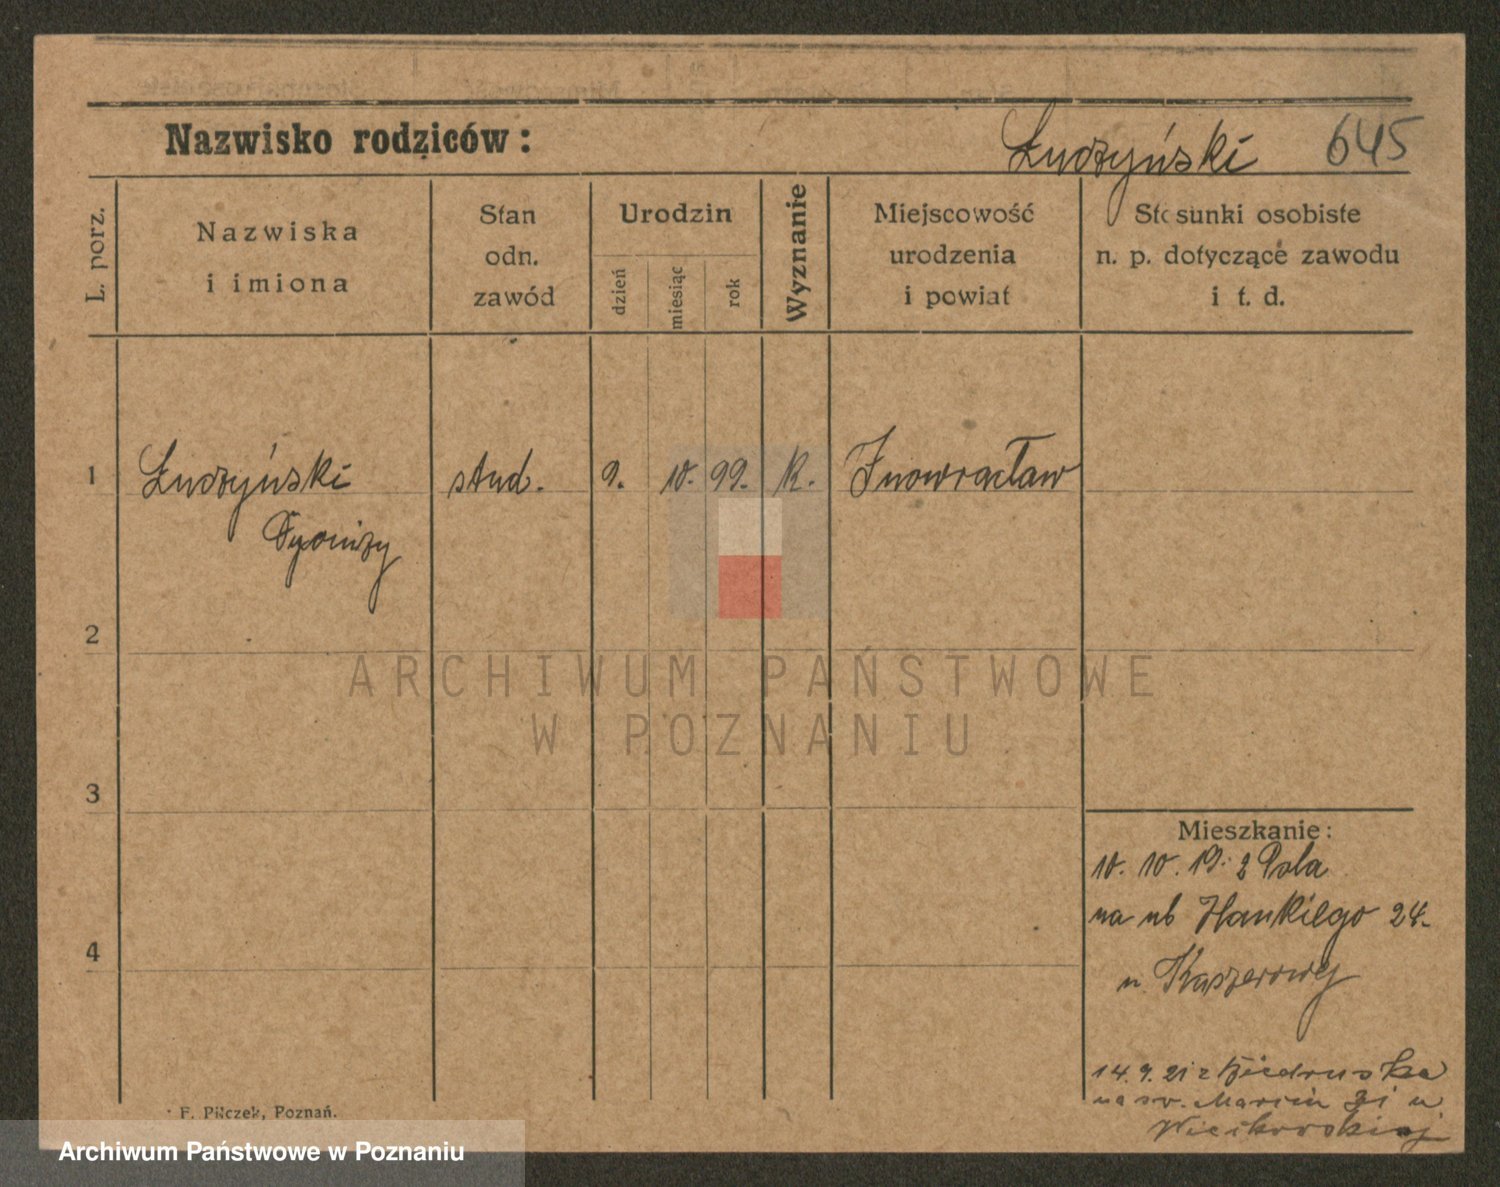 Nazwisko rodziców: Łudzyński 645
L. porz.
Nazwiska
i imiona
Stan
odn.
zawód
Urodzin
dzień
miesiąc
rok
Wyznanie
Miejscowość
urodzenia
i powiat
Stosunki osobiste
n. p. dotyczące zawodu
i t. d.
1 Łudzyński stud. 9. 10. 99. K. Inowrocław
Dyonizy
2
ARCHIWUM PAŃSTWOWE
W POZNANIU
3
Mieszkanie:
10. 10. 19. z
na
24.
4
u.
14. 9. 21 z Biedruska
na św. Marcin u
F. Pilczek, Poznań.
Archiwum Państwowe w Poznaniu